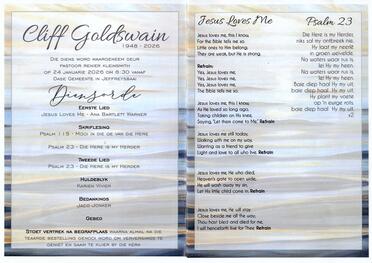 Cliff Goldswain
1948 - 2026
Die diens word waargeneem deur
Pastoor Renier Kleinsmith
op 24 Januarie 2026 om 8:30 vanaf
Oase Gemeente in Jeffreysbaai
Diensorde
Eerste Lied
Jesus Loves Me - Ana Bartlett Warner
Skriflesing
Psalm 115 - Mooi in die oë van die Here
Psalm 23 - Die Here is my Herder
Tweede Lied
Psalm 23 - Die Here is my Herder
Huldeblyk
Karien Vivier
Bedankings
Jaco Jonker
Gebed
Stoet vertrek na begrafplaas waarna almal na die
teardie bestelling genooi word om verversings te
geniet en saam te kuier by die kerk
Jesus Loves Me
Jesus loves me, this I know,
For the Bible tells me so.
Little ones to Him belong,
They are weak, but He is strong.
Refrain:
Yes, Jesus loves me,
Yes, Jesus loves me,
Yes, Jesus loves me,
The Bible tells me so.
Jesus loves me, this I know,
As He loved so long ago,
Taking children on His knee,
Saying, "Let them come to Me." Refrain
Jesus loves me still today,
Walking with me on my way,
Wanting as a friend to give
Light and love to all who live. Refrain
Jesus loves me, He who died,
Heaven's gate to open wide,
He will wash away my sin,
Let His little child come in. Refrain
Jesus loves me, He will stay
Close beside me all the way,
Thou hast bled and died for me,
I will henceforth live for Thee. Refrain
Psalm 23
Die Here is my Herder,
niks sal my ontbreek nie.
Hy laat my neerlê
in groen weivelde.
Na waters waar rus is,
lei Hy my heen.
Na waters waar rus is,
lei Hy my heen.
Baie diep haal Hy my uit
baie diep haal Hy my uit
Hy plant my voete
op 'n ewige rots.
baie diep haal Hy my uit.
x2